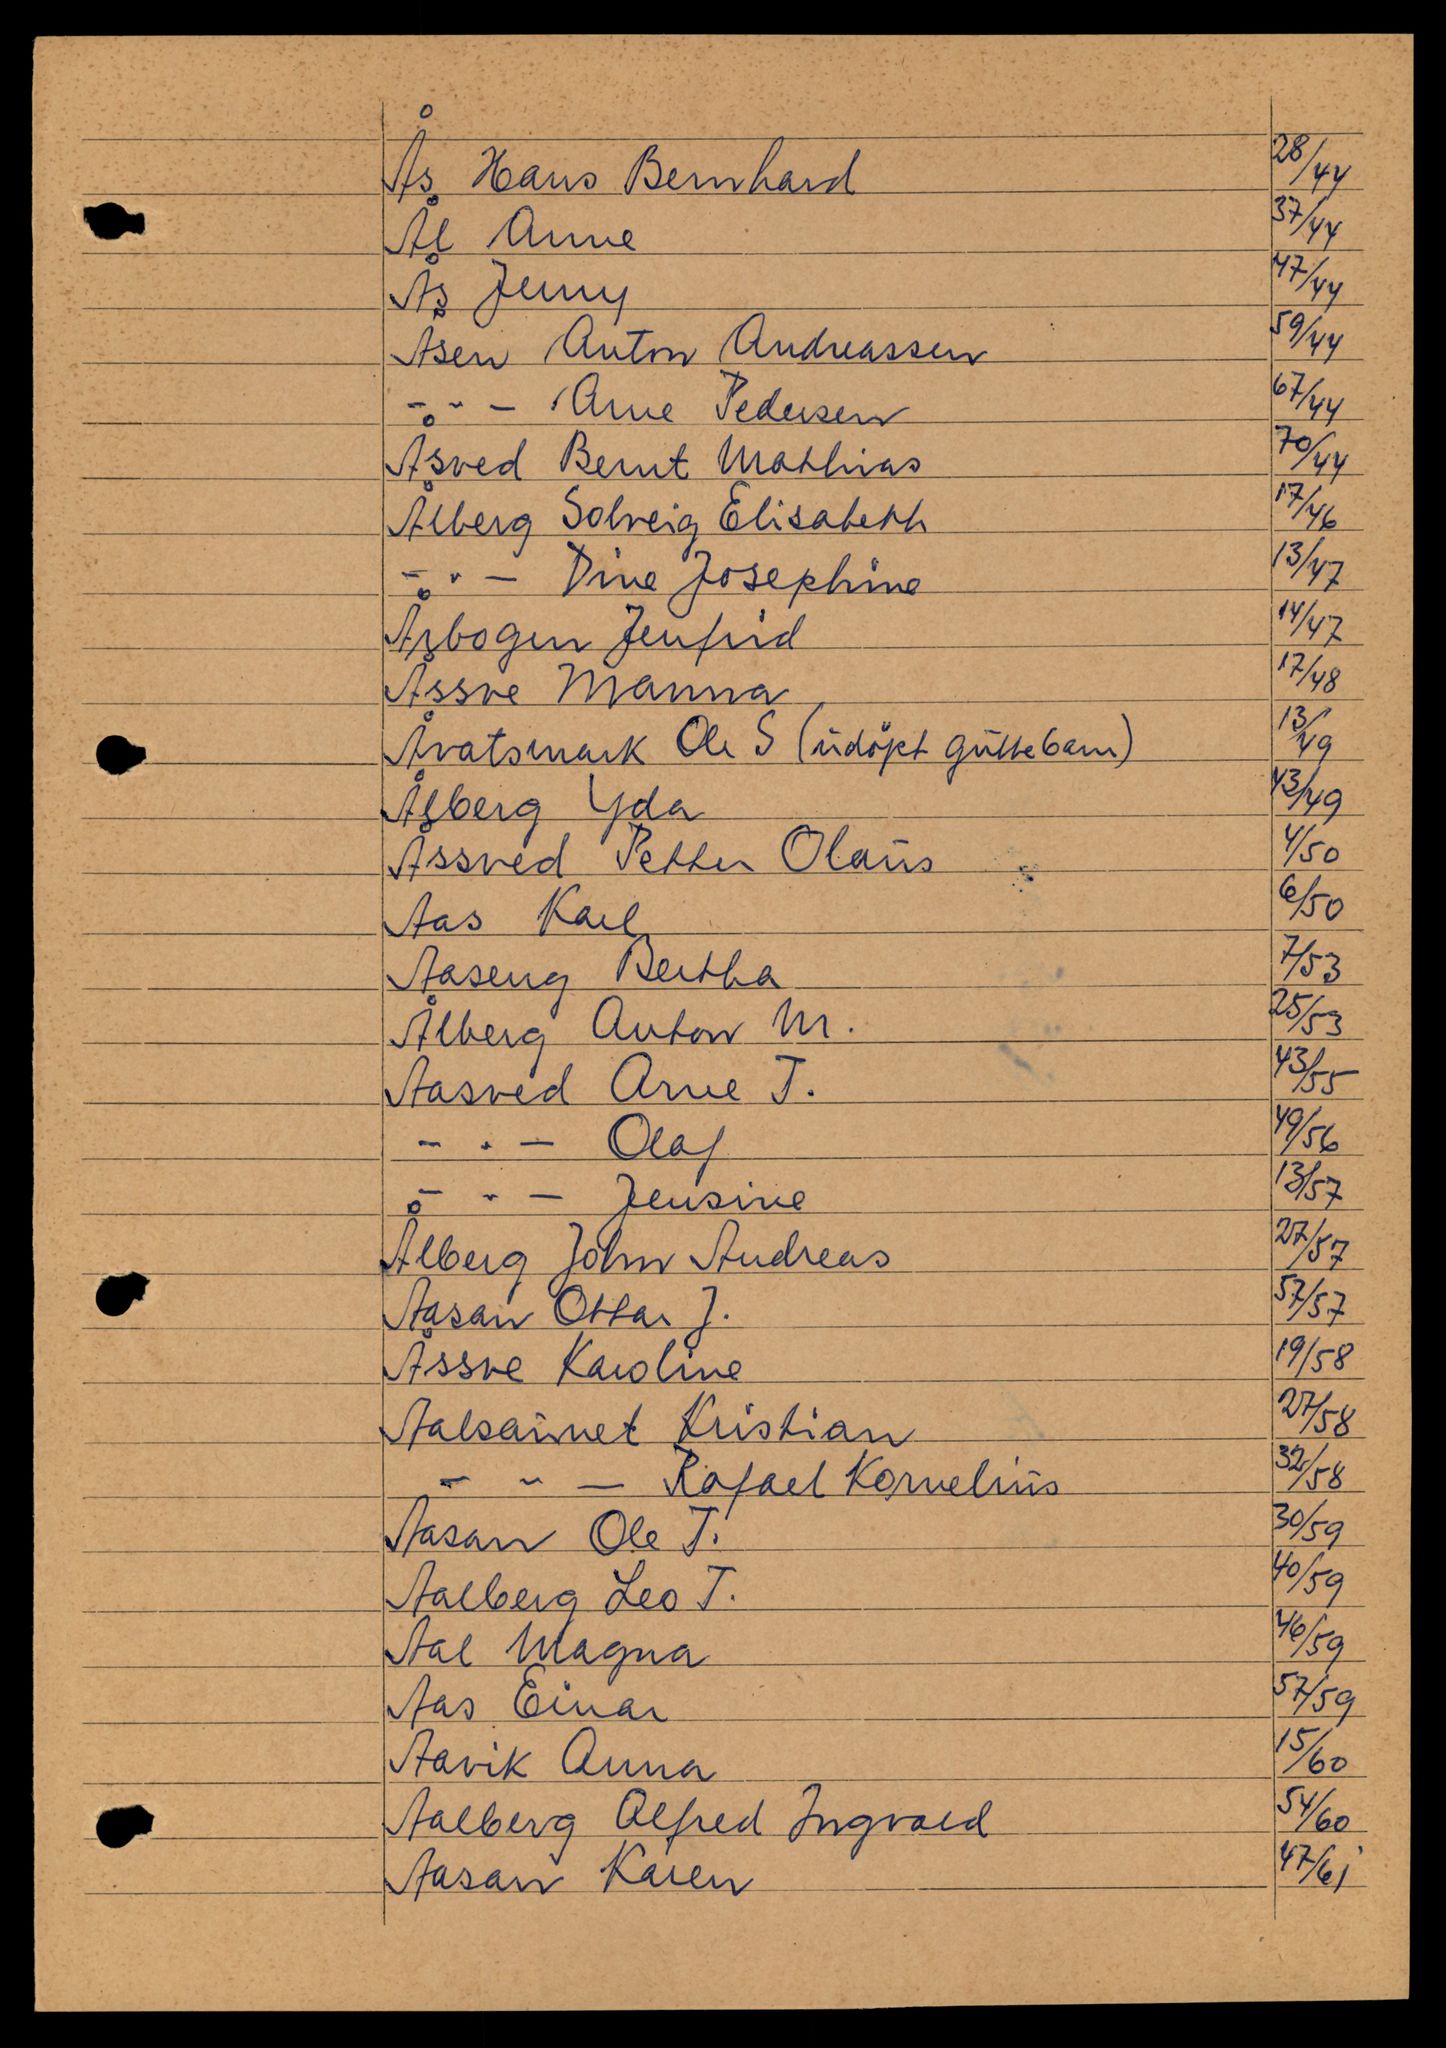 Ås Hans Bernhard 28/44
Ål Anne 37/44
Ås Jenny 47/44
Åsen Anton Andreassen 59/44
- " - Arne Pedersen 67/44
Åsved Bernt Mathias 70/44
Ålberg Solveig Elisabeth 17/46
- " - Dine Josephine 13/47
Årbogen Jenfrid 14/47
Åssve Manna 17/48
Åvatsmark Ole S (udöpt guttebarn) 13/49
Ålberg Yda 43/49
Åssved Petter Olaus 4/50
Aas Karl 6/50
Aaseng Bertha 7/53
Ålberg Anton M. 25/53
Aasved Arne T. 43/55
- " - Olaf 49/56
- " - Jensine 13/57
Ålberg John Andreas 27/57
Aasan Ottar J. 57/57
Åssve Karoline 19/58
Aalsaunet Kristian 27/58
- " - Rafael Kornelius 32/58
Aasan Ole T. 30/59
Aalberg Leo T. 40/59
Aal Magna 46/59
Aas Einar 57/59
Aavik Anna 15/60
Aalberg Alfred Ingvald 54/60
Aasan Karen 47/61